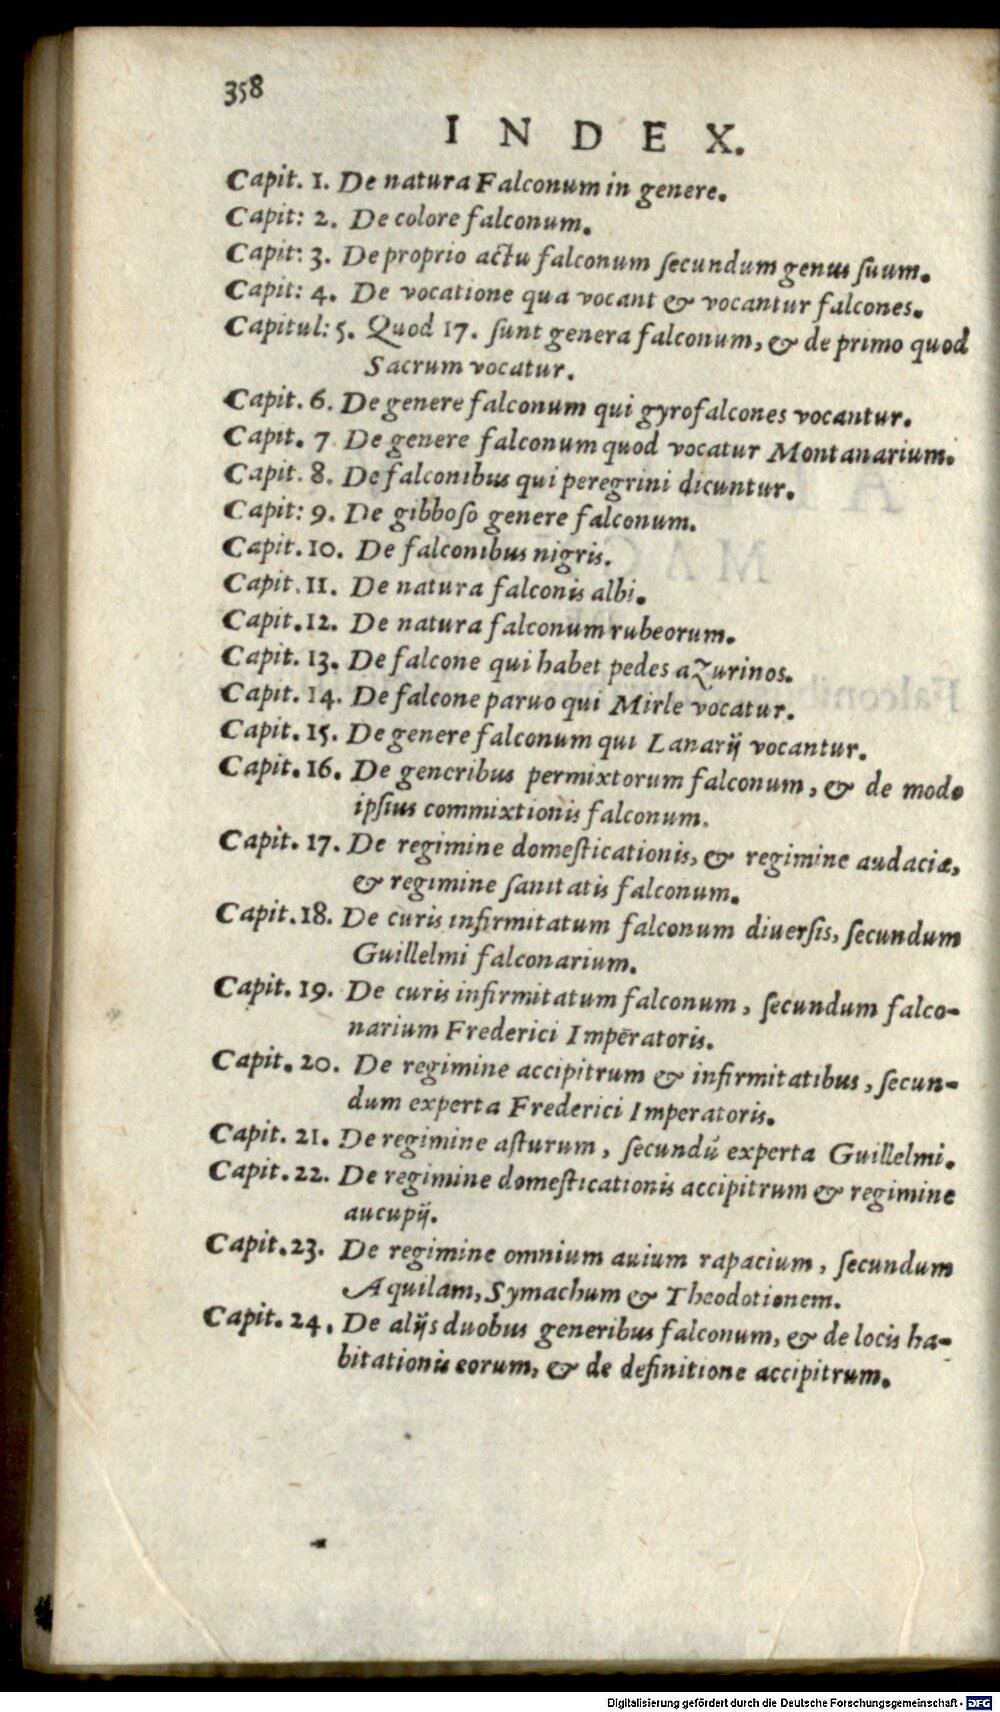 358
INDEX.
Capit. 1. De natura Falconum in genere.
Capit: 2. De colore falconum.
Capit: 3. De proprio actu falconum ſecundum genus ſuum.
Capit: 4. De vocatione qua vocant & vocantur falcones.
Capitul: 5. Quod 17. ſunt genera falconum, & de primo quod
Sacrum vocatur.
Capit. 6. De genere falconum qui gyrofalcones vocantur.
Capit. 7 De genere falconum quod vocatur Montanarium.
Capit. 8. De falconibus qui peregrini dicuntur.
Capit: 9. De gibboſo genere falconum.
Capit. 10. De falconibus nigris.
Capit. 11. De natura falconis albi.
Capit. 12. De natura falconum rubeorum.
Capit. 13. De falcone qui habet pedes aZurinos.
Capit. 14. De falcone paruo qui Mirle vocatur.
Capit. 15. De genere falconum qui Lanarij vocantur.
Capit. 16. De generibus permixtorum falconum, & de modo
ipſius commixtionis falconum.
Capit. 17. De regimine domeſticationis, & regimine audaciæ,
& regimine ſanitatis falconum.
Capit. 18. De curis infirmitatum falconum diuerſis, ſecundum
Guillelmi falconarium.
Capit. 19. De curis infirmitatum falconum, ſecundum falco-
narium Frederici Impēratoris.
Capit. 20. De regimine accipitrum & infirmitatibus, ſecun-
dum experta Frederici Imperatoris.
Capit. 21. De regimine aſturum, ſecundū experta Guillelmi.
Capit. 22. De regimine domeſticationis accipitrum & regimine
aucupij.
Capit. 23. De regimine omnium auium rapacium, ſecundum
Aquilam, Symachum & Theodotionem.
Capit. 24. De alijs duobus generibus falconum, & de locis ha-
bitationis eorum, & de definitione accipitrum.
Digitalisierung gefördert durch die Deutsche Forschungsgemeinschaft - DFG